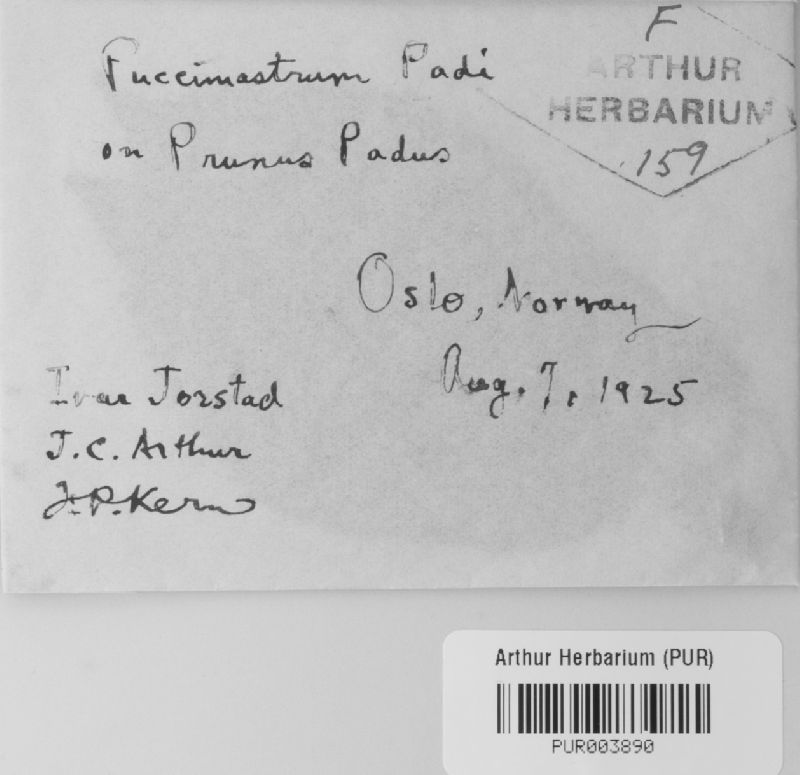 Pucciniastrum Padi
on Prunus Padus
F
ARTHUR
HERBARIUM
159
Oslo, Norway
Aug. 7, 1925
Ivar Jorstad
J.C. Arthur
F.P. Kern
Arthur Herbarium (PUR)
PUR003890